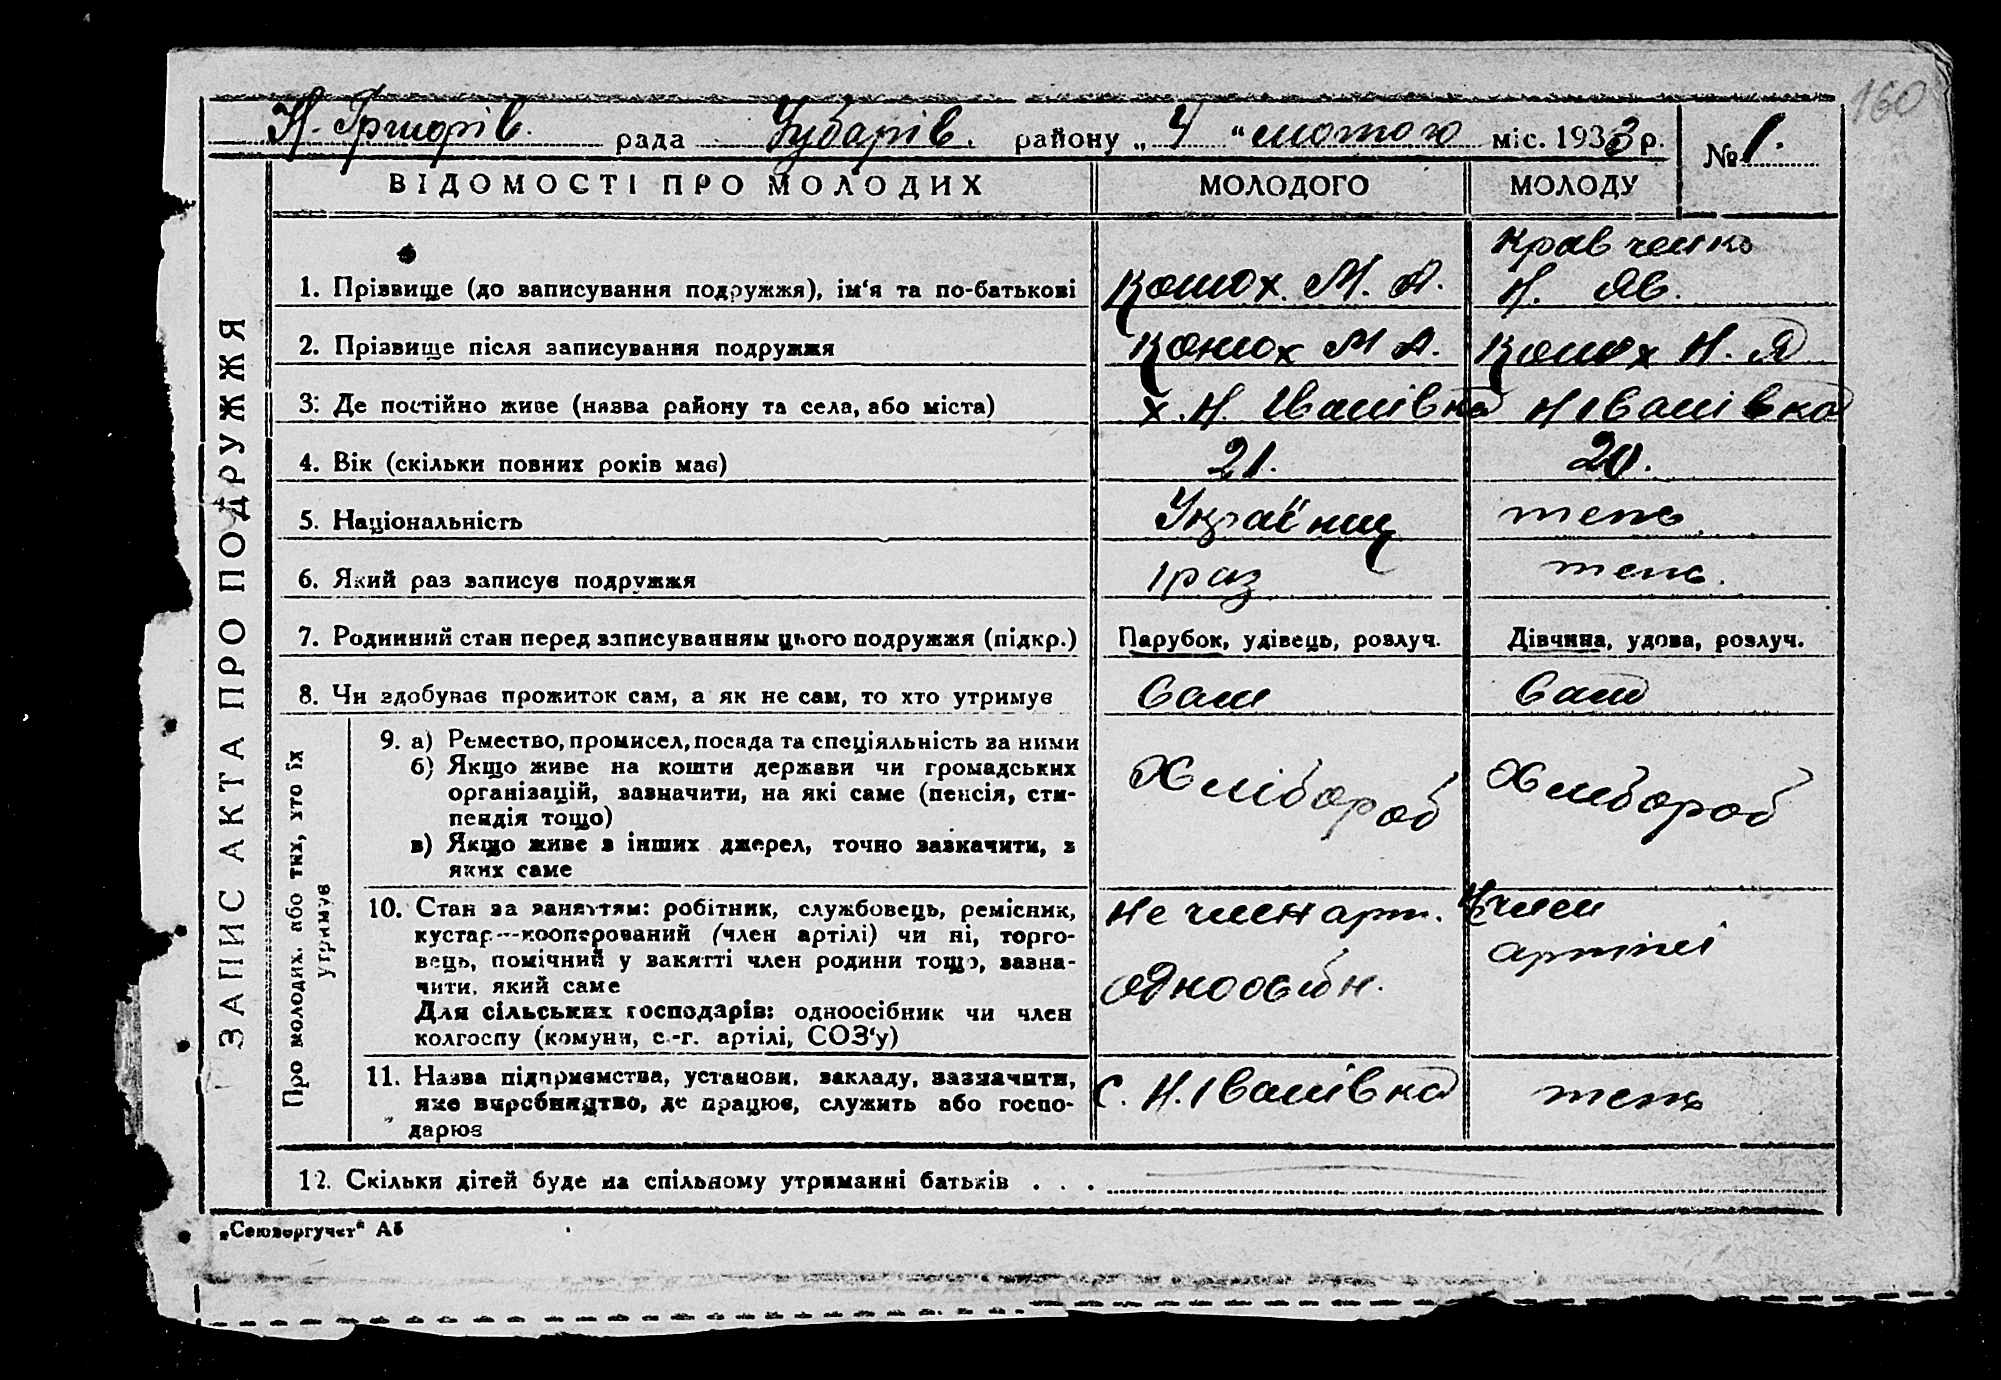 160
Н. Григорів. рада Чубарів. району „ 4 " лютого міс. 1933 р. № 1.
ВІДОМОСТІ ПРО МОЛОДИХ МОЛОДОГО МОЛОДУ
ЗАПИС АКТА ПРО ПОДРУЖЖЯ
Кравченко
1. Прізвище (до записування подружжя), ім'я та по-батькові Конюх. М. А. Н. Яв.
2. Прізвище після записування подружжя Конюх М А. Конюх Н. Я
3. Де постійно живе (назва району та села, або міста) х. Н. Іванівка Н Іванівка
4. Вік (скільки повних років має) 21. 20.
5. Національність Українец тепь.
6. Який раз записує подружжя 1 раз тепь.
7. Родинний стан перед записуванням цього подружжя (підкр.) Парубок, удівець, розлуч. Дівчина, удова, розлуч.
8. Чи здобував прожиток сам, а як не сам, то хто утримує Сам Сама
Про молодих, або тих, хто їх
утримує
9. а) Ремество, промисел, посада та спеціяльність за ними
б) Якщо живе на кошти держави чи громадських
організацій, зазначити, на які саме (пенсія, сти-
пендія тощо)
в) Якщо живе з інших джерел, точно зазначити, з
яких саме
Хлібороб Хлібороб
10. Стан за заняттям: робітник, службовець, ремісник,
кустар—кооперований (член артілі) чи ні, торго-
вець, помічний у занятті член родини тощо, зазна-
чити, який саме
Для сільських господарів: одноосібник чи член
колгоспу (комуни, с.-г. артілі, СОЗ'у)
Не член арт. член
одноосібн. артілі
11. Назва підприємства, установи, закладу, зазначити,
яке виробництво, де працює, служить або госпо-
дарює
с. Н. Іванівка тепь
12. Скільки дітей буде на спільному утриманні батьків . . .
„Союзоргучет" Аб